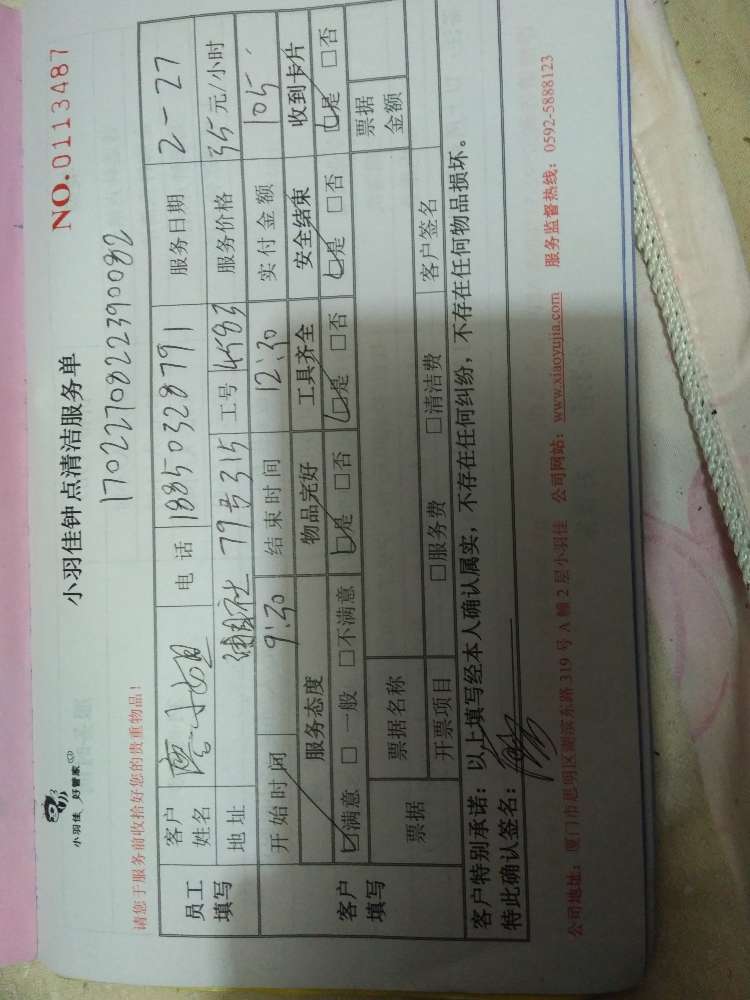 小羽佳 好管家
小羽佳钟点清洁服务单
NO.0113487
17022708222390082
请您于服务前收拾好您的贵重物品!
员工填写 客户姓名 廖小姐 电话 18850328791 服务日期 2-27
地址 79号315 工号 4583 服务价格 35元/小时
客户填写 开始时间 9:30 结束时间 12:30 实付金额 105
服务态度 物品完好 工具齐全 安全结束 收到卡片
☑满意 □一般 □不满意 ☑是 □否 ☑是 □否 ☑是 □否 ☑是 □否
票据 票据名称 票据金额
开票项目 □服务费 □清洁费 客户签名
客户特别承诺:以上填写经本人确认属实,不存在任何纠纷,不存在任何物品损坏。
特此确认签名:
公司地址:厦门市思明区湖滨东路319号A幢2层小羽佳 公司网站:www.xiaoyujia.com 服务监督热线:0592-5888123